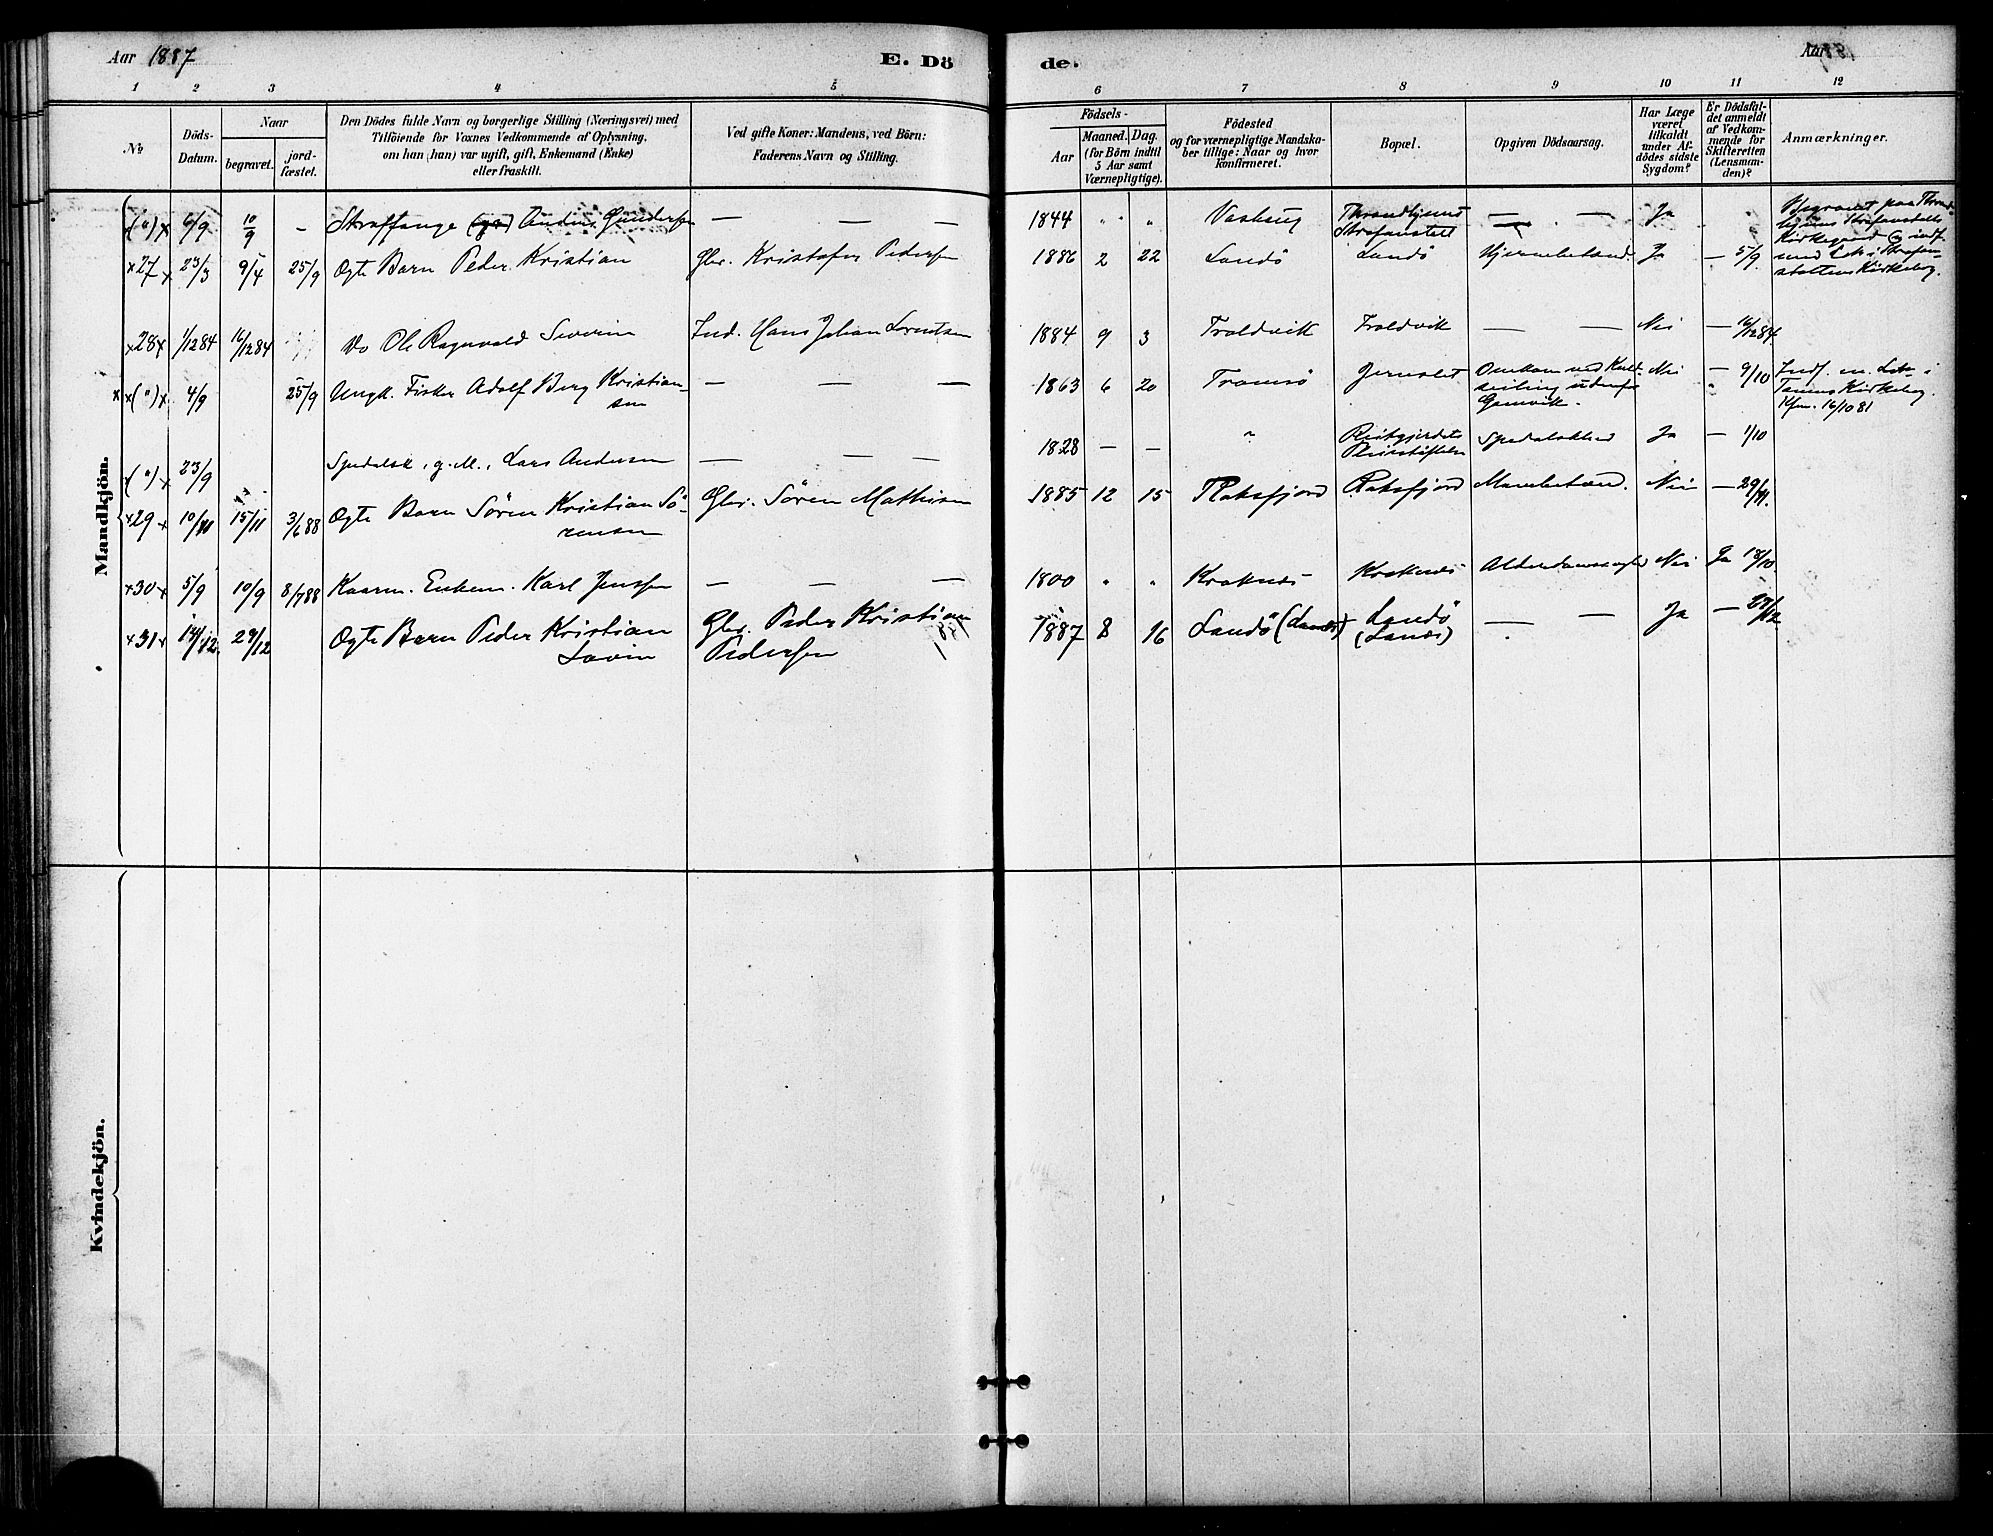 Aar 1887
E. Dö
de.
Aar
1 2 3 4 5 6 7 8 9 10 11 12
No
Döds-
Datum.
Naar
begravet.
jord-
fæstet.
Den Dödes fulde Navn og borgerlige Stilling (Næringsvei) med
Tilföiende for Voxnes Vedkommende af Oplysning,
om han (hun) var ugift, gift, Enkemand (Enke)
eller fraskilt.
Ved gifte Koner: Mandens, ved Börn:
Faderens Navn og Stilling.
Födsels-
Aar
Maaned. Dag.
(for Börn indtil
5 Aar samt
Værnepligtige).
Födested
og for værnepligtige Mandska-
ber tillige: Naar og hvor
konfirmeret.
Bopæl.
Opgiven Dödsaarsag.
Har Læge
været
tilkaldt
under Af-
dödes sidste
Sygdom?
Er Dödsfal-
det anmeldt
af Vedkom-
mende for
Skifteretten
(Lensman-
den)?
Anmærkninger.
Mandkjön.
(") x 6/9 10/9 - Straffange Anders Gundersen — — — 1844 " " Throndhjems Strafanstalt — — Ja
Begravet paa Thrond-
hjems Strafanstalts
Kirkegaard og indf.
med Lek i Strafan-
staltens Kirkebog.
x 27 x 23/3 9/4 25/9 Ægte Barn Peder Kristian Gbr. Kristofer Pedersen 1886 2 22 Sandö Sandö Hjernebetænd. Ja — 5/9
x 28 x 1/12 84 16/12 84 Do Ole Ragnvald Severin Ind. Hans Johan Lorentsen 1884 9 3 Troldvik Troldvik — — Nei — 16/12 84
x (") x 4/9 25/9 Ungk. Fisker Adolf Berg Kristian-
sen — — — 1863 6 20 Tromsö Omkom ved Kuld-
seiling udenfor
Gamvik. Nei — 9/10 Indf. m. Lek i
Tanens Kirkebog.
Kfm. 16/10 81
x (") x 23/9 Spedalsk, g. M., Lars Andersen — — — 1828 — — " Reitgjerdets
Pleiestiftelse Spedalskhed Ja — 1/10
x 29 x 10/11 15/11 3/6 88 Ægte Barn Sören Kristian Sö-
rensen Gbr. Sören Mathisen 1885 12 15 Raksfjord Raksfjord Mavebetænd. Nei — 29/11.
x 30 x 5/9 10/9 8/7 88 Kaarm. Enkem. Karl Jenssen — — — 1800 " " Kraknæs Kraknæs Alderdomssvaghed Nei Ja 18/10
x 31 x 14/12. 29/12 Ægte Barn Peder Kristian
Lavin Gbr. Peder Kristian
Pedersen 1887 8 16 Sandö Sandö — — Ja — 29/12
Kvindekjön.